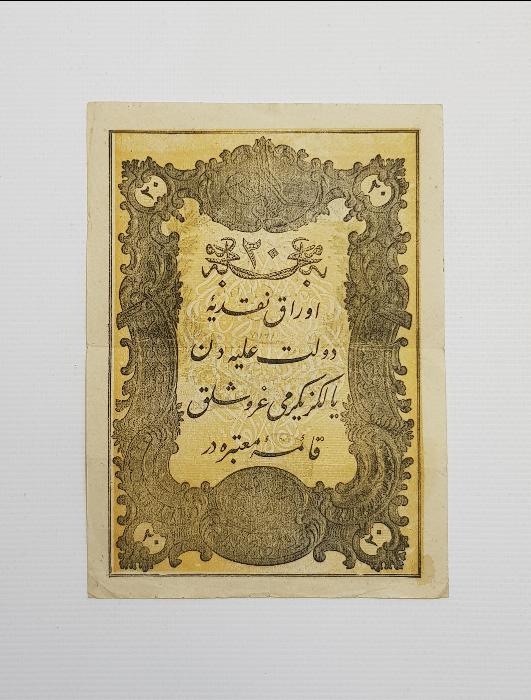 ٢٠
٢٠
٢٠
اوراق نقديۀ
دولت عليه دن
يالكز يكرمى غروشلق
قائمۀ معتبره در
٢٠
٢٠